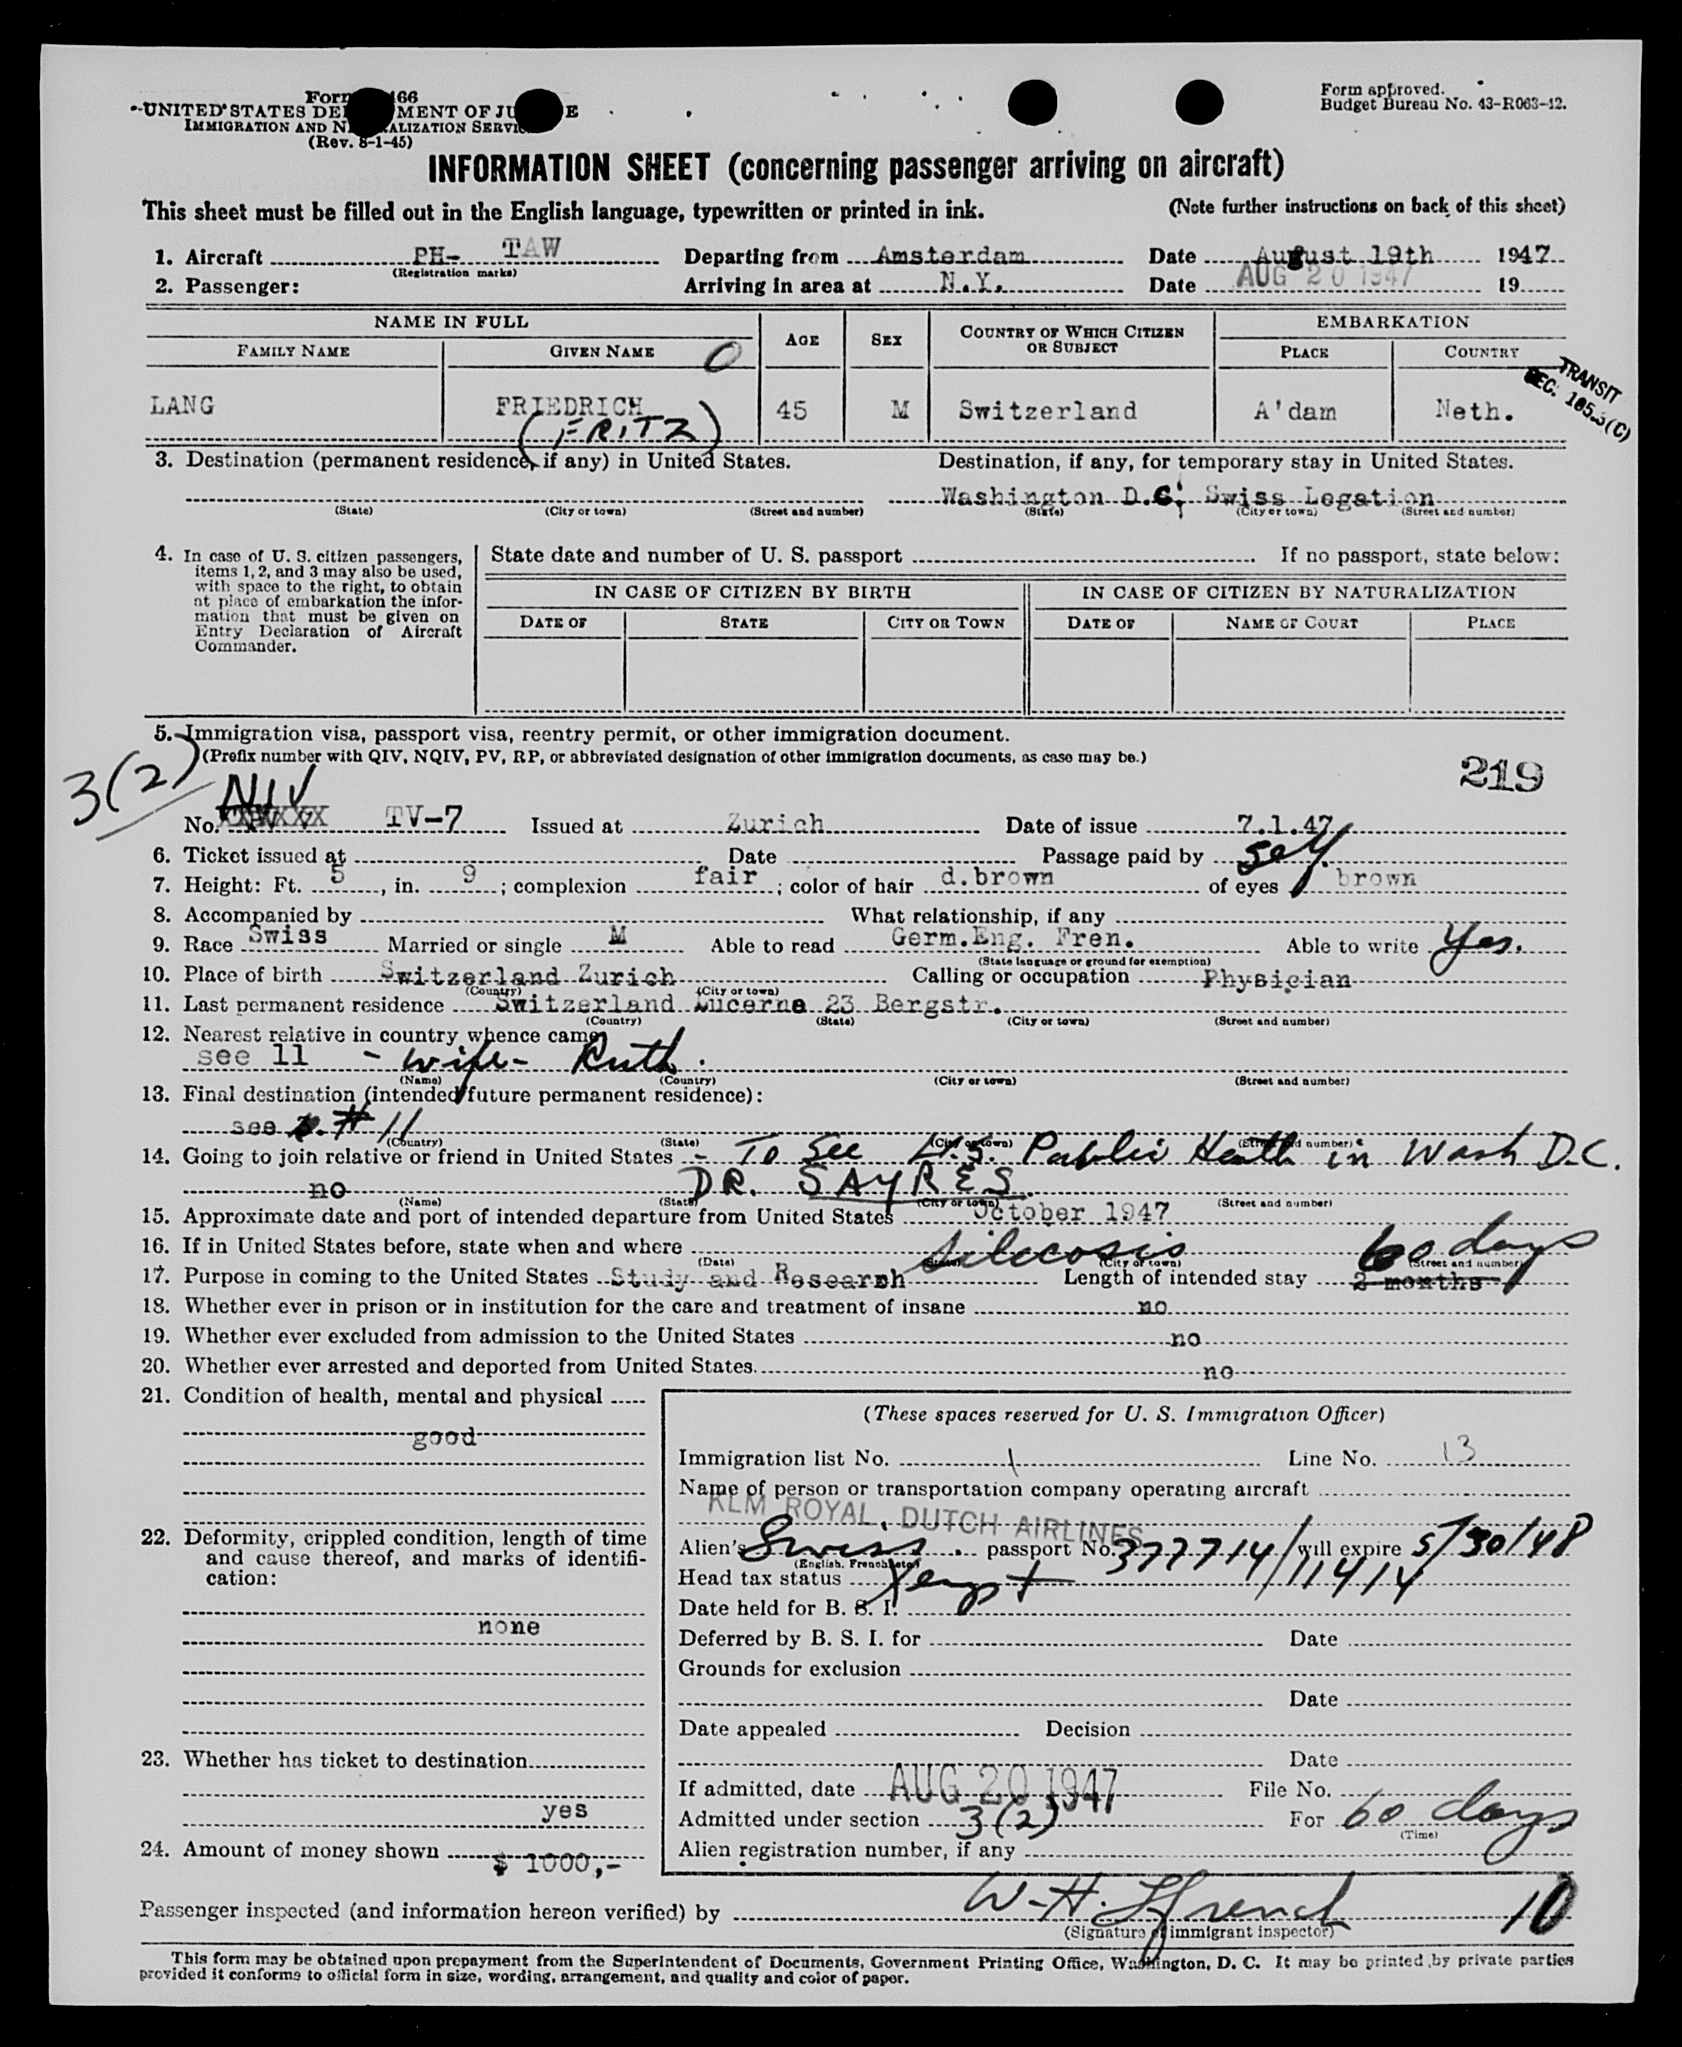 Form 466
UNITED STATES DEPARTMENT OF JUSTICE
IMMIGRATION AND NATURALIZATION SERVICE
(Rev. 8-1-45)
Form approved.
Budget Bureau No. 43-R063-12.
INFORMATION SHEET (concerning passenger arriving on aircraft)
This sheet must be filled out in the English language, typewritten or printed in ink. (Note further instructions on back of this sheet)
1. Aircraft PH- TAW Departing from Amsterdam Date August 19th 1947
(Registration marks)
2. Passenger: Arriving in area at N.Y. Date AUG 20 1947 19
NAME IN FULL AGE SEX COUNTRY OF WHICH CITIZEN OR SUBJECT EMBARKATION
FAMILY NAME GIVEN NAME O PLACE COUNTRY
TRANSIT
SEC. 165.3(C)
LANG FRIEDRICH 45 M Switzerland A'dam Neth.
(FRITZ)
3. Destination (permanent residence, if any) in United States. Destination, if any, for temporary stay in United States.
Washington D.C; Swiss Legation
(State) (City or town) (Street and number) (State) (City or town) (Street and number)
4. In case of U. S. citizen passengers, items 1, 2, and 3 may also be used, with space to the right, to obtain at place of embarkation the information that must be given on Entry Declaration of Aircraft Commander.
State date and number of U. S. passport If no passport, state below:
IN CASE OF CITIZEN BY BIRTH IN CASE OF CITIZEN BY NATURALIZATION
DATE OF STATE CITY OR TOWN DATE OF NAME OF COURT PLACE
5. Immigration visa, passport visa, reentry permit, or other immigration document.
(Prefix number with QIV, NQIV, PV, RP, or abbreviated designation of other immigration documents, as case may be.)
3(2)
219
NIV
No. TV-7 Issued at Zurich Date of issue 7.1.47
6. Ticket issued at Date Passage paid by self
7. Height: Ft. 5, in. 9; complexion fair; color of hair d.brown of eyes brown
8. Accompanied by What relationship, if any
9. Race Swiss Married or single M Able to read Germ.Eng. Fren. Able to write Yes.
(State language or ground for exemption)
10. Place of birth Switzerland Zurich Calling or occupation Physician
(Country) (City or town)
11. Last permanent residence Switzerland Lucerne 23 Bergstr.
(Country) (State) (City or town) (Street and number)
12. Nearest relative in country whence came
see 11 - wife - Ruth.
(Name) (Country) (City or town) (Street and number)
13. Final destination (intended future permanent residence):
see # 11
(Country) (State) (City or town) (Street and number)
14. Going to join relative or friend in United States - To See U.S. Public Health in Wash D.C.
no DR. SAYRES.
(Name) (State) (City or town) (Street and number)
15. Approximate date and port of intended departure from United States October 1947
16. If in United States before, state when and where
(Date) (State) (City or town) (Street and number)
silicosis 60 days
17. Purpose in coming to the United States Study and Research Length of intended stay 2 months
18. Whether ever in prison or in institution for the care and treatment of insane no
19. Whether ever excluded from admission to the United States no
20. Whether ever arrested and deported from United States. no
21. Condition of health, mental and physical
good
22. Deformity, crippled condition, length of time and cause thereof, and marks of identification:
none
23. Whether has ticket to destination
yes
24. Amount of money shown $ 1000,-
(These spaces reserved for U. S. Immigration Officer)
Immigration list No. 1 Line No. 13
Name of person or transportation company operating aircraft
KLM ROYAL DUTCH AIRLINES
Alien's Swiss passport No. 377714/11414 will expire 5/30/48
(English, French, etc.)
Head tax status Xempt
Date held for B. S. I.
Deferred by B. S. I. for Date
Grounds for exclusion
Date
Date appealed Decision
Date
If admitted, date AUG 20 1947 File No.
Admitted under section 3(2) For 60 days
(Time)
Alien registration number, if any
Passenger inspected (and information hereon verified) by W. H. Ffrench 10
(Signature of immigrant inspector)
This form may be obtained upon prepayment from the Superintendent of Documents, Government Printing Office, Washington, D. C. It may be printed by private parties
provided it conforms to official form in size, wording, arrangement, and quality and color of paper.